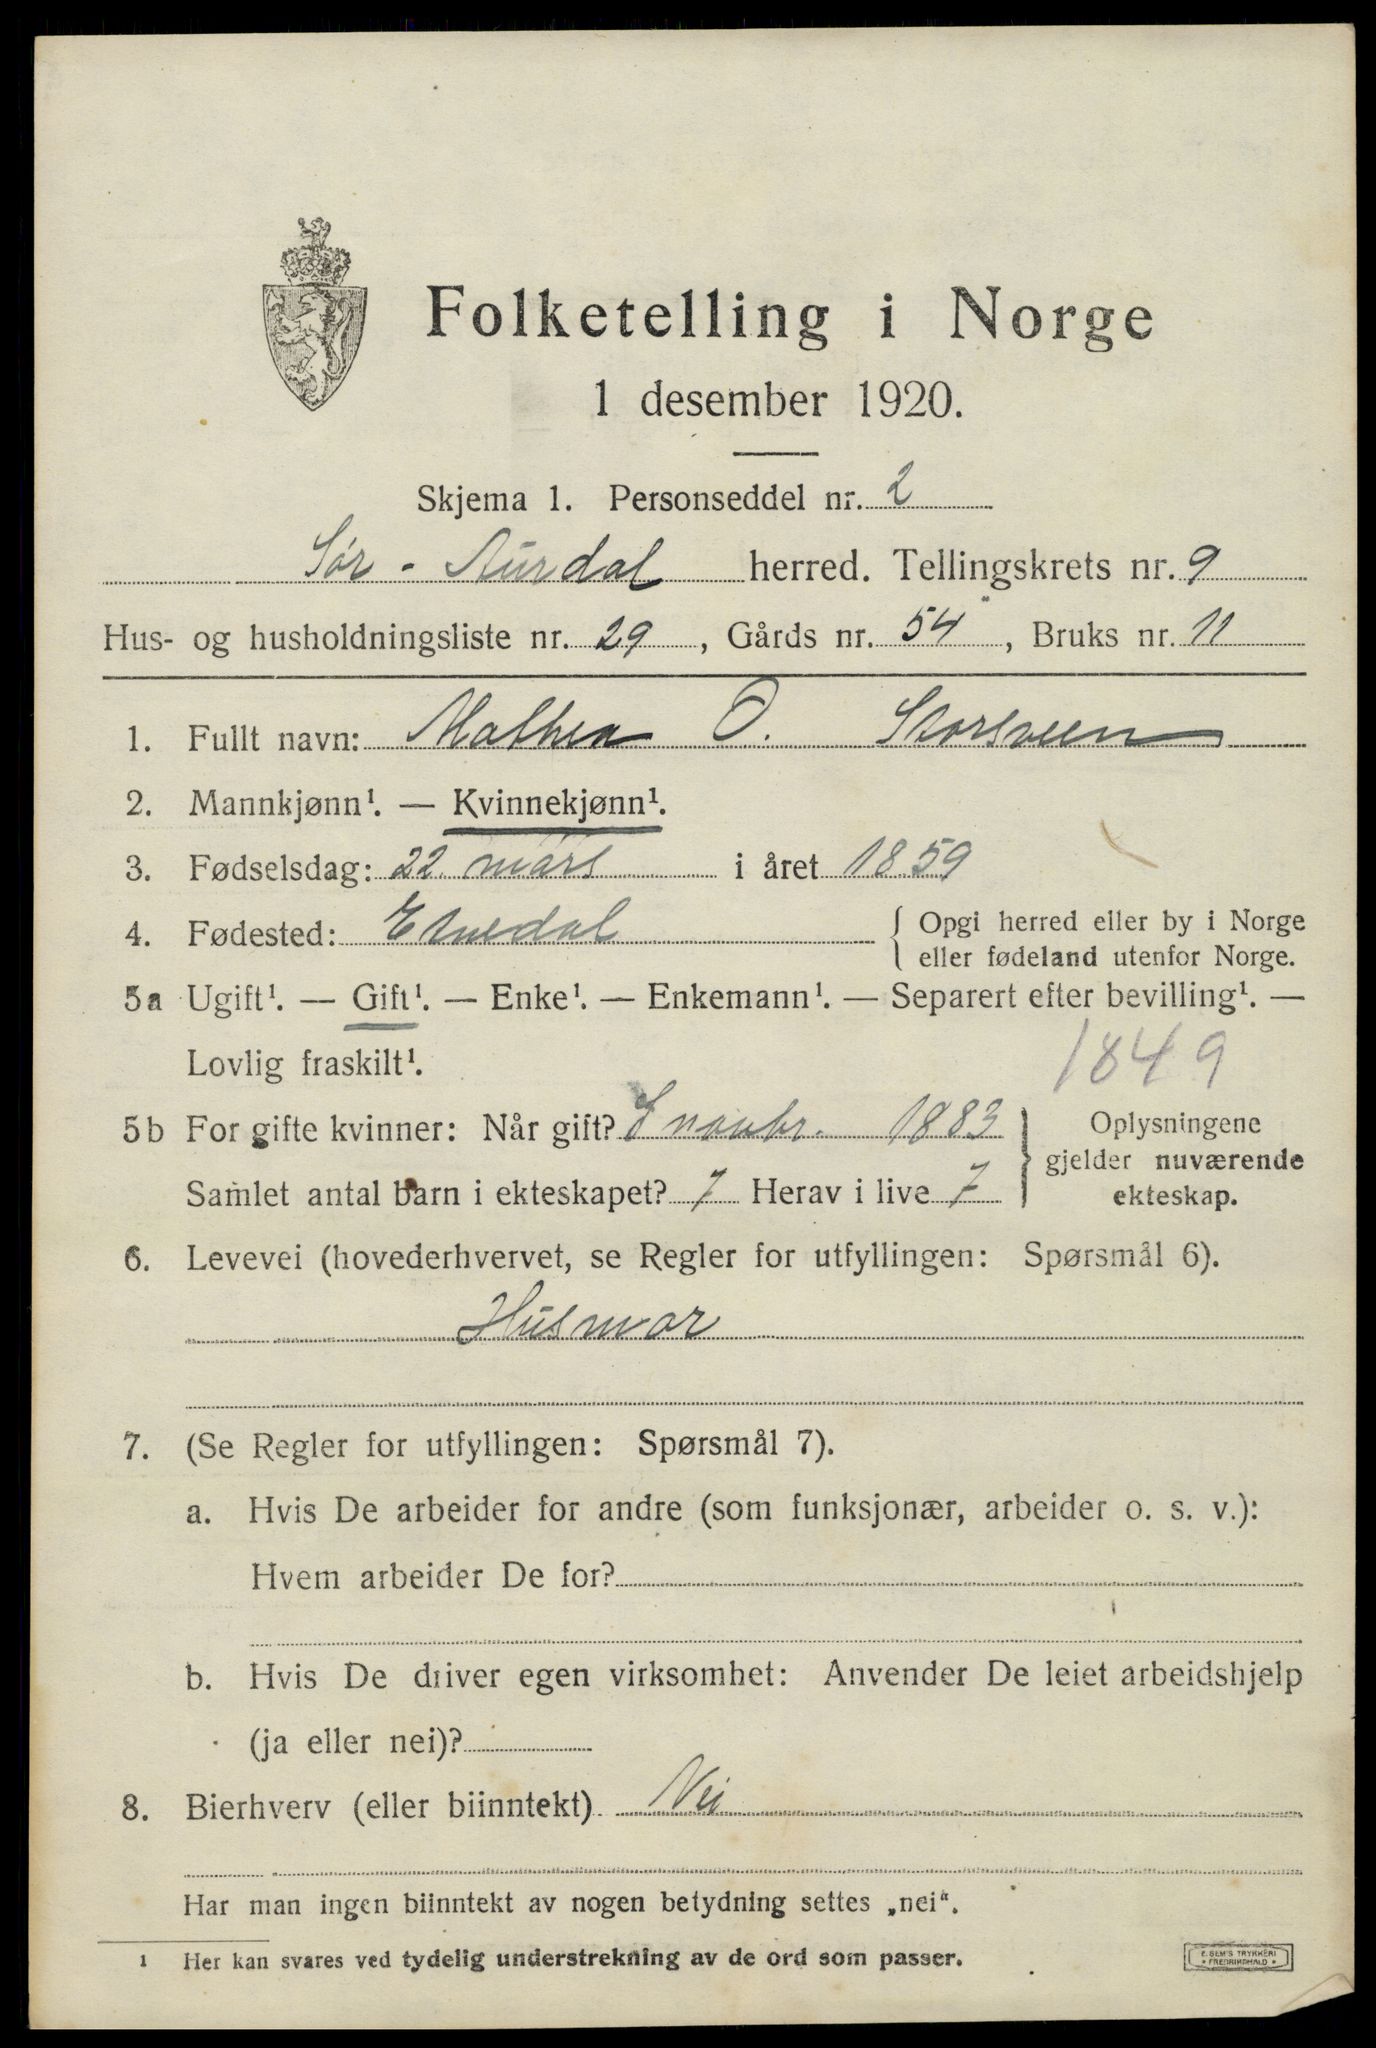 Folketelling i Norge
1 desember 1920.
Skjema 1. Personseddel nr. 2
Sør-Aurdal herred. Tellingskrets nr. 9
Hus- og husholdningsliste nr. 29, Gårds nr. 54, Bruks nr. 11
1. Fullt navn: Mathea O. Storsveen
2. Mannkjønn¹. — Kvinnekjønn¹.
3. Fødselsdag: 22 mars i året 1859
4. Fødested: Etnedal { Opgi herred eller by i Norge
eller fødeland utenfor Norge.
5a Ugift¹. — Gift¹. — Enke¹. — Enkemann¹. — Separert efter bevilling¹. —
Lovlig fraskilt¹.
1849
5b For gifte kvinner: Når gift? novbr. 1883
Samlet antal barn i ekteskapet? 7 Herav i live 7
} Oplysningene
gjelder nuværende
ekteskap.
6. Levevei (hovederhvervet, se Regler for utfyllingen: Spørsmål 6).
Husmor
7. (Se Regler for utfyllingen: Spørsmål 7).
a. Hvis De arbeider for andre (som funksjonær, arbeider o. s. v.):
Hvem arbeider De for?
b. Hvis De driver egen virksomhet: Anvender De leiet arbeidshjelp
(ja eller nei)?
8. Bierhverv (eller biinntekt) Nei
Har man ingen biinntekt av nogen betydning settes „nei“.
1 Her kan svares ved tydelig understrekning av de ord som passer.
E. SEM'S TRYKKERI
• FREDRIKSHALD •